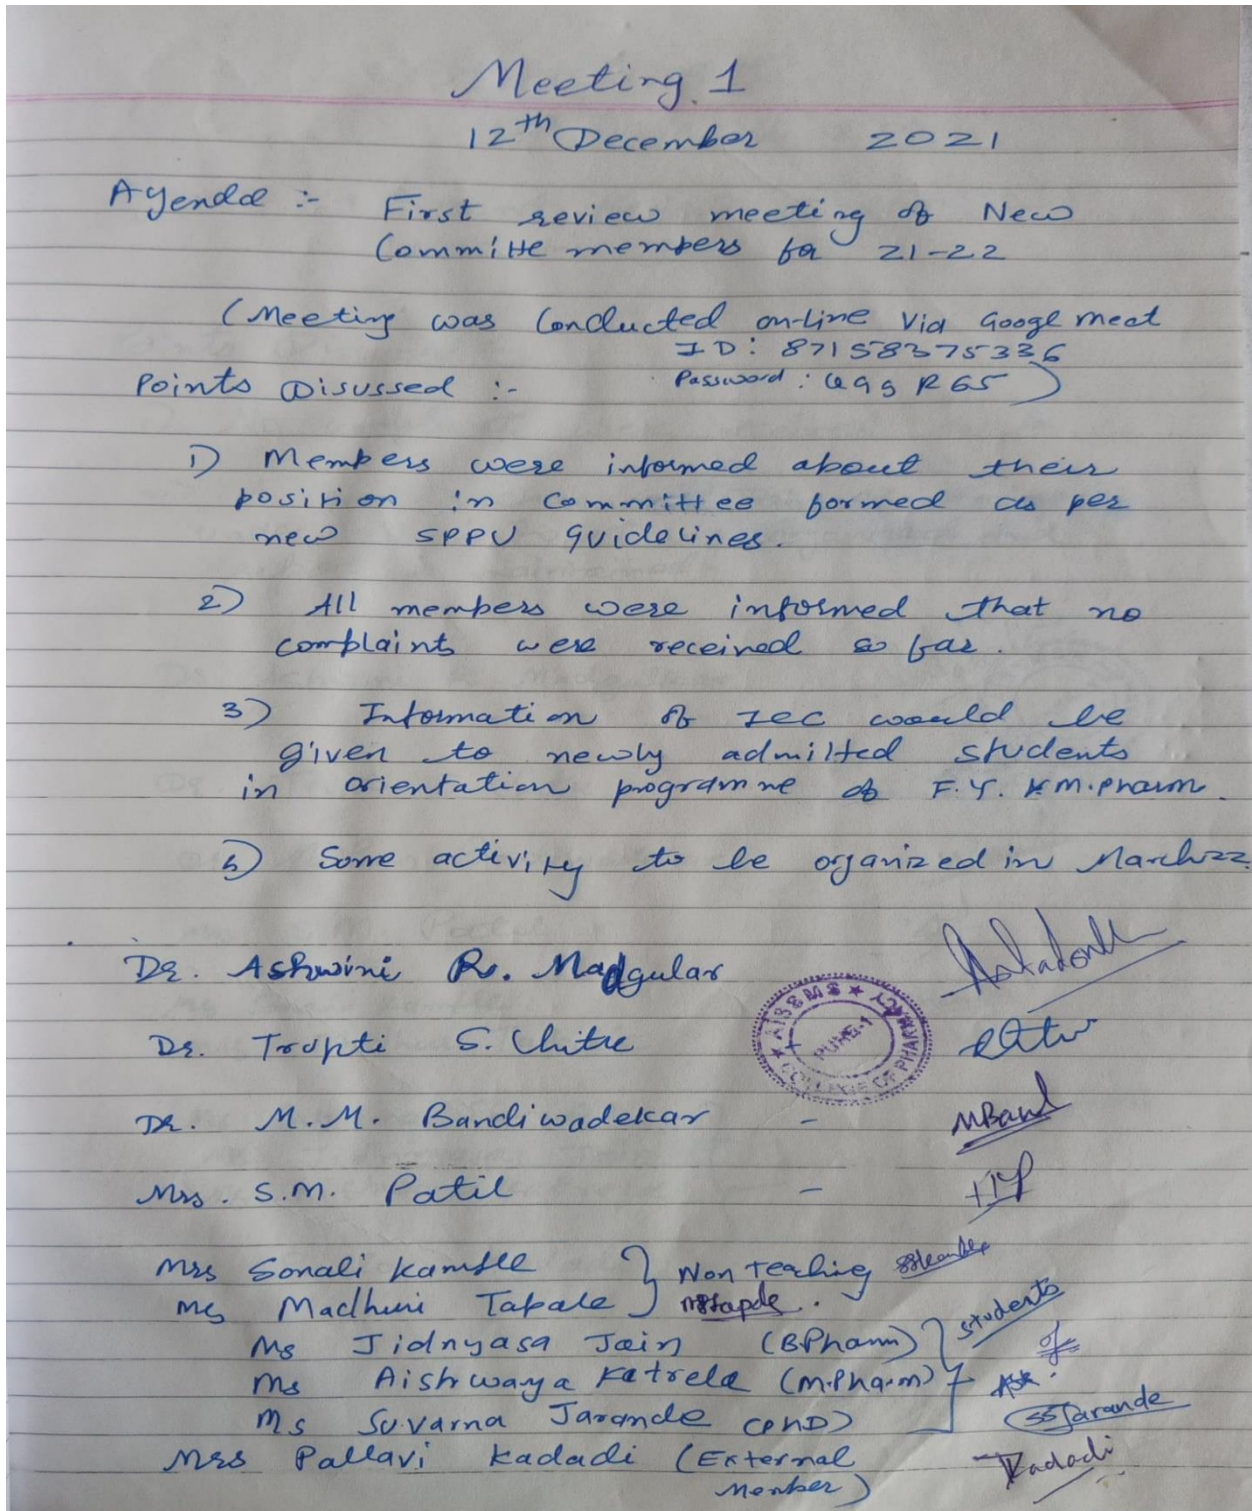 Meeting 1
12th December 2021
Agenda :- First review meeting of New
Committe members for 21-22
(Meeting was Conducted on-line Via Googl meet
ID: 87158375336
Points Disussed :- Password : R65)
1) Members were informed about their
position in Committee formed as per
new SPPU guidelines.
2) All members were informed that no
complaints were received so far.
3) Information of ICC would be
given to newly admitted students
in orientation programme of F.Y. & M.Pharm.
4) Some activity to be organized in March22.
Dr. Ashwini R. Madgulkar
Dr. Trupti S. Chitre
AISSMS
COLLEGE OF PHARMACY
PUNE-1
Dr. M.M. Bandiwadekar - MBand
Mrs. S.M. Patil -
Mrs Sonali Kamble } Non teaching
Ms Madhuri Tapale
Ms Jidnyasa Jain (B.Pharm) } Students
Ms Aishwaya Katrela (M.Pharm)
Ms Suvarna Jarande (PhD) SSJarande
Mrs Pallavi Kadadi (External Kadadi
Member)